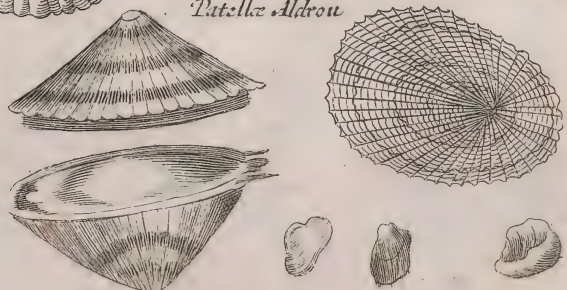 Patellæ Aldrou